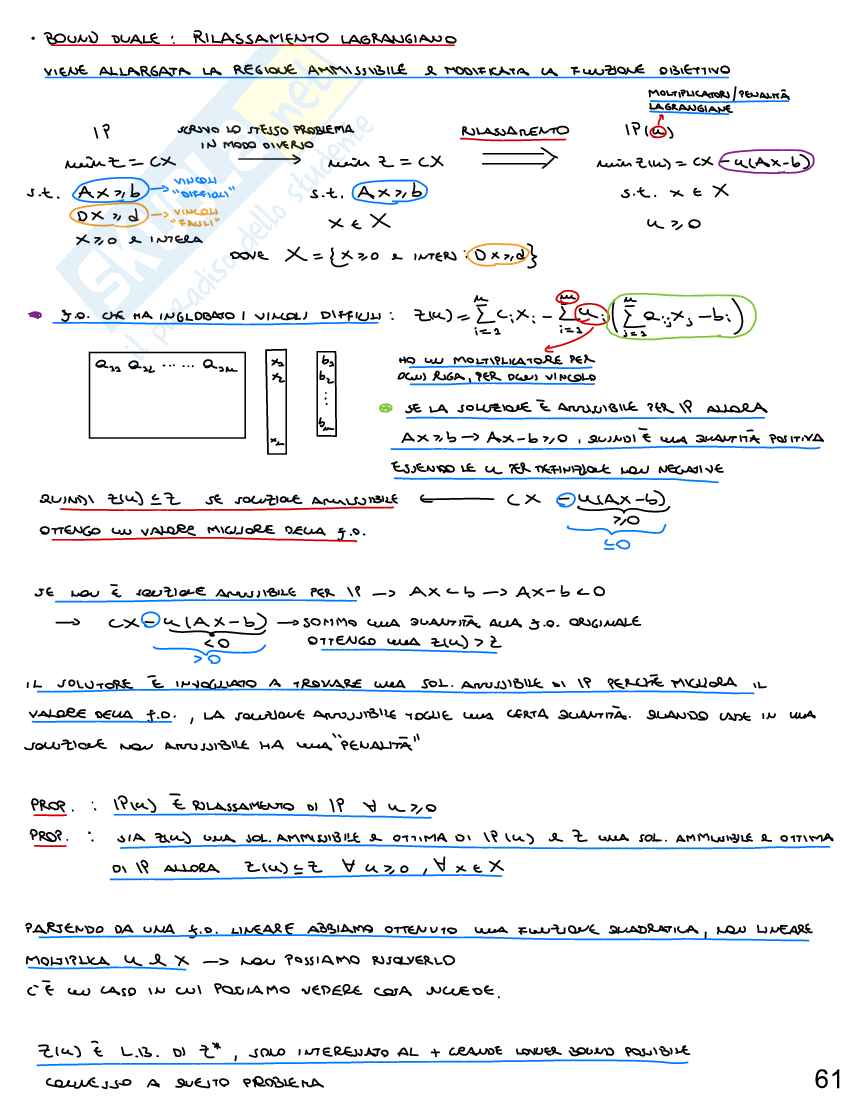 • BOUND DUALE : RILASSAMENTO LAGRANGIANO
VIENE ALLARGATA LA REGIONE AMMISSIBILE E MODIFICATA LA FUNZIONE OBIETTIVO
MOLTIPLICATORI/PENALITÀ
LAGRANGIANE
IP SCRIVO LO STESSO PROBLEMA RILASSAMENTO IP(u)
IN MODO DIVERSO
min z = cx → min z = cx ⟹ min z(u) = cx - u(Ax-b)
s.t. Ax ≥ b → VINCOLI "DIFFICILI" s.t. Ax ≥ b s.t. x ∈ X
Dx ≥ d → VINCOLI "FACILI" x ∈ X u ≥ 0
x ≥ 0 e INTERA
DOVE X = {x ≥ 0 e INTERI : Dx ≥ d}
F.O. CHE HA INGLOBATO I VINCOLI DIFFICILI : z(u) = Σ_{i=1}^{n} c_i x_i - Σ_{i=1}^{m} u_i (Σ_{j=1}^{n} a_ij x_j - b_i)
HO UN MOLTIPLICATORE PER
OGNI RIGA, PER OGNI VINCOLO
a_11 a_12 ... ... a_1n x_1 b_1
x_2 b_2
⋮
x_n b_m
SE LA SOLUZIONE È AMMISSIBILE PER IP ALLORA
Ax ≥ b → Ax - b ≥ 0, QUINDI È UNA QUANTITÀ POSITIVA
ESSENDO LE u PER DEFINIZIONE NON NEGATIVE
QUINDI z(u) ≤ z SE SOLUZIONE AMMISSIBILE ← cx - u(Ax-b)
≥ 0
≤ 0
OTTENGO UN VALORE MIGLIORE DELLA F.O.
SE NON È SOLUZIONE AMMISSIBILE PER IP → Ax < b → Ax - b < 0
→ cx - u(Ax-b) → SOMMO UNA QUANTITÀ ALLA F.O. ORIGINALE
< 0 OTTENGO UNA z(u) > z
> 0
IL SOLUTORE È INVOGLIATO A TROVARE UNA SOL. AMMISSIBILE DI IP PERCHÈ MIGLIORA IL
VALORE DELLA F.O., LA SOLUZIONE AMMISSIBILE TOGLIE UNA CERTA QUANTITÀ. QUANDO CADE IN UNA
SOLUZIONE NON AMMISSIBILE HA UNA "PENALITÀ"
PROP. : IP(u) È RILASSAMENTO DI IP ∀ u ≥ 0
PROP. : SIA z(u) UNA SOL. AMMISSIBILE E OTTIMA DI IP(u) E z UNA SOL. AMMISSIBILE E OTTIMA
DI IP ALLORA z(u) ≤ z ∀ u ≥ 0, ∀ x ∈ X
PARTENDO DA UNA F.O. LINEARE ABBIAMO OTTENUTO UNA FUNZIONE QUADRATICA, NON LINEARE
MOLTIPLICA u E x → NON POSSIAMO RISOLVERLO
C'È UN CASO IN CUI POSSIAMO VEDERE COSA SUCCEDE.
z(u) È L.B. DI z*, SONO INTERESSATO AL + GRANDE LOWER BOUND POSSIBILE
CONNESSO A QUESTO PROBLEMA
61
skuola.net
il paradiso dello studente